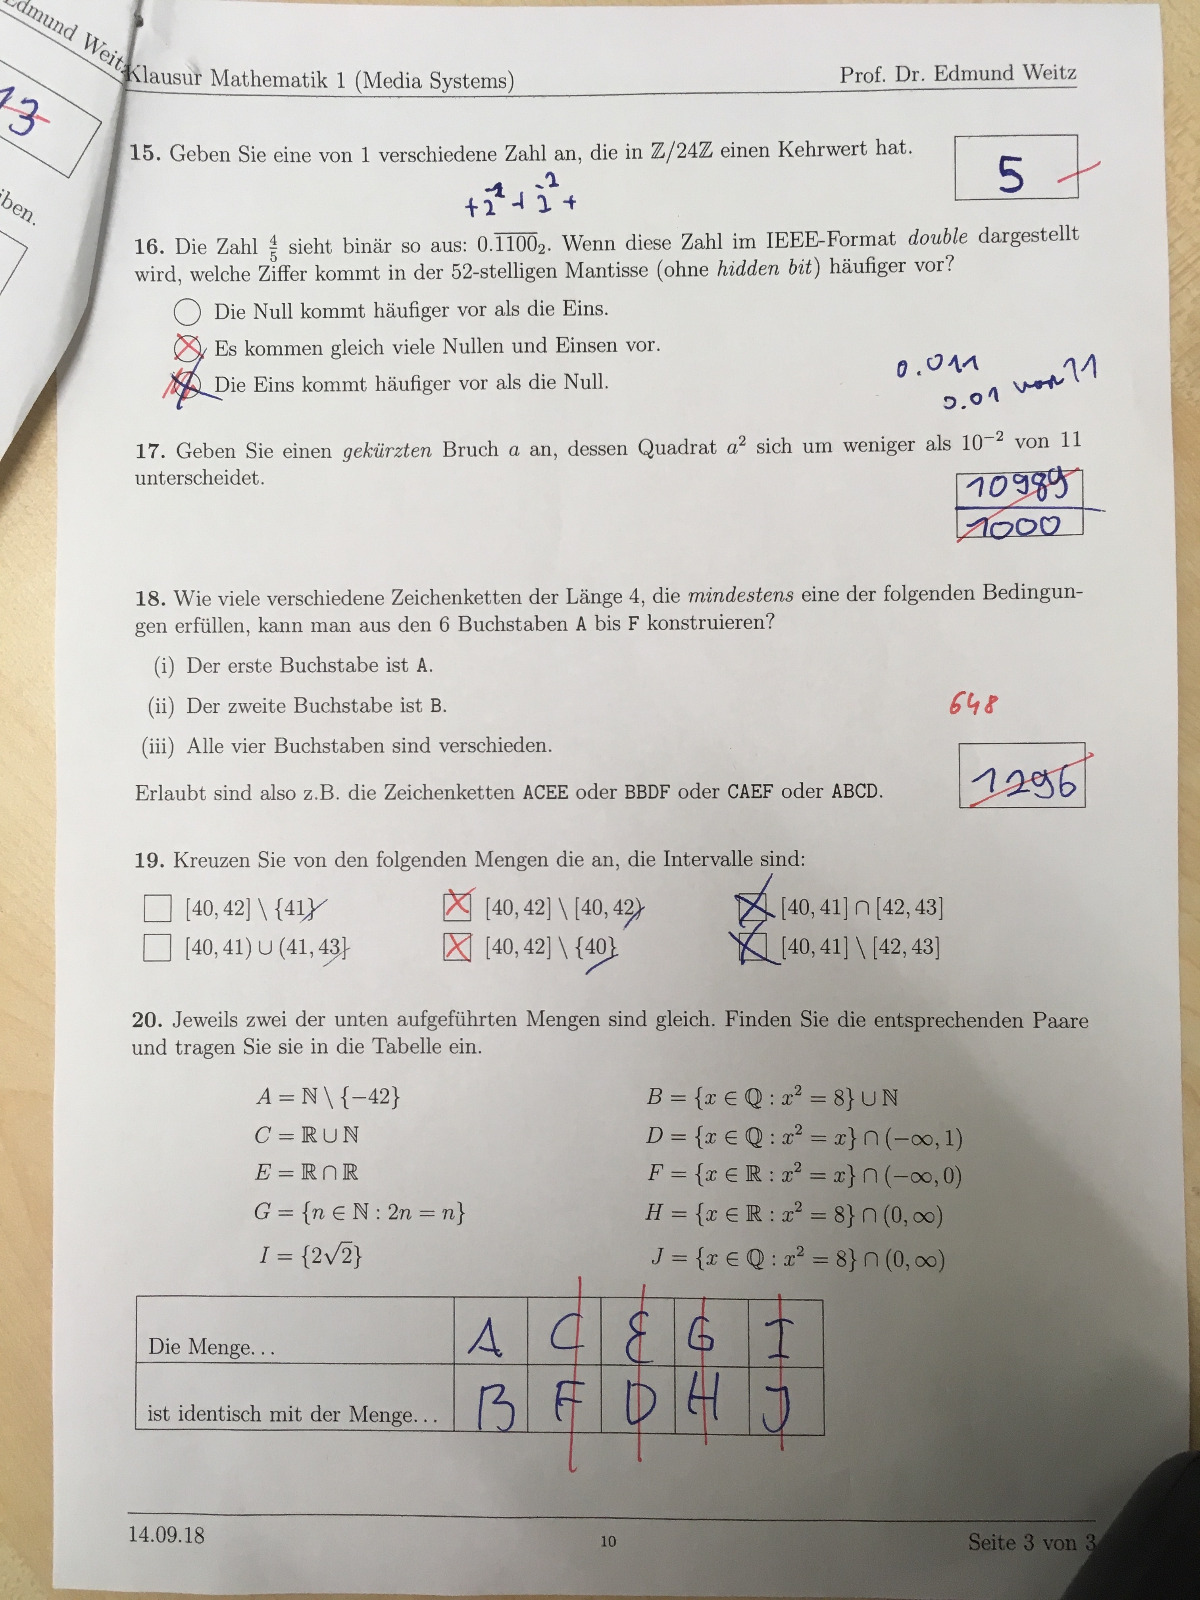 Edmund Weitz
13
iben.
Klausur Mathematik 1 (Media Systems)
Prof. Dr. Edmund Weitz
15. Geben Sie eine von 1 verschiedene Zahl an, die in ℤ/24ℤ einen Kehrwert hat.
5
16. Die Zahl 4/5 sieht binär so aus: 0.1̅1̅0̅0̅₂. Wenn diese Zahl im IEEE-Format double dargestellt
wird, welche Ziffer kommt in der 52-stelligen Mantisse (ohne hidden bit) häufiger vor?
Die Null kommt häufiger vor als die Eins.
Es kommen gleich viele Nullen und Einsen vor.
Die Eins kommt häufiger vor als die Null.
0.011
0.01 von 11
17. Geben Sie einen gekürzten Bruch a an, dessen Quadrat a² sich um weniger als 10⁻² von 11
unterscheidet.
10989
1000
18. Wie viele verschiedene Zeichenketten der Länge 4, die mindestens eine der folgenden Bedingun-
gen erfüllen, kann man aus den 6 Buchstaben A bis F konstruieren?
(i) Der erste Buchstabe ist A.
(ii) Der zweite Buchstabe ist B.
648
(iii) Alle vier Buchstaben sind verschieden.
Erlaubt sind also z.B. die Zeichenketten ACEE oder BBDF oder CAEF oder ABCD.
1296
19. Kreuzen Sie von den folgenden Mengen die an, die Intervalle sind:
[40, 42] \ {41} [40, 42] \ [40, 42) [40, 41] ∩ [42, 43]
[40, 41) ∪ (41, 43] [40, 42] \ {40} [40, 41] \ [42, 43]
20. Jeweils zwei der unten aufgeführten Mengen sind gleich. Finden Sie die entsprechenden Paare
und tragen Sie sie in die Tabelle ein.
A = ℕ \ {−42} B = {x ∈ ℚ : x² = 8} ∪ ℕ
C = ℝ ∪ ℕ D = {x ∈ ℚ : x² = x} ∩ (−∞, 1)
E = ℝ ∩ ℝ F = {x ∈ ℝ : x² = x} ∩ (−∞, 0)
G = {n ∈ ℕ : 2n = n} H = {x ∈ ℝ : x² = 8} ∩ (0, ∞)
I = {2√2} J = {x ∈ ℚ : x² = 8} ∩ (0, ∞)
Die Menge... A C E G I
ist identisch mit der Menge... B F D H J
14.09.18 10 Seite 3 von 3